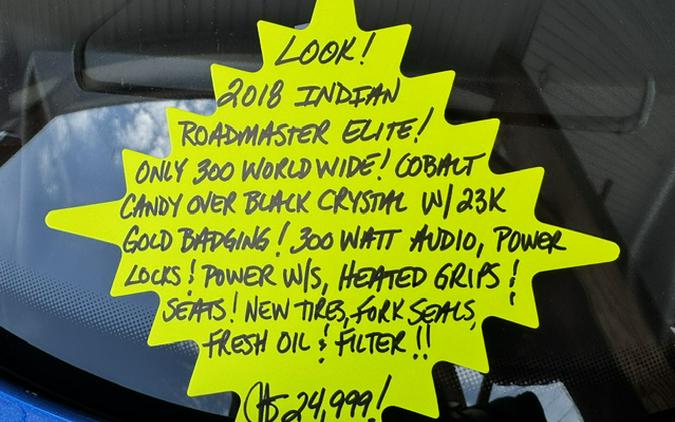 LOOK!
2018 INDIAN
ROADMASTER ELITE!
ONLY 300 WORLDWIDE! COBALT
CANDY OVER BLACK CRYSTAL W/ 23K
GOLD BADGING! 300 WATT AUDIO, POWER
LOCKS & POWER W/S, HEATED GRIPS &
SEATS! NEW TIRES, FORK SEALS,
FRESH OIL & FILTER!!
24,999!